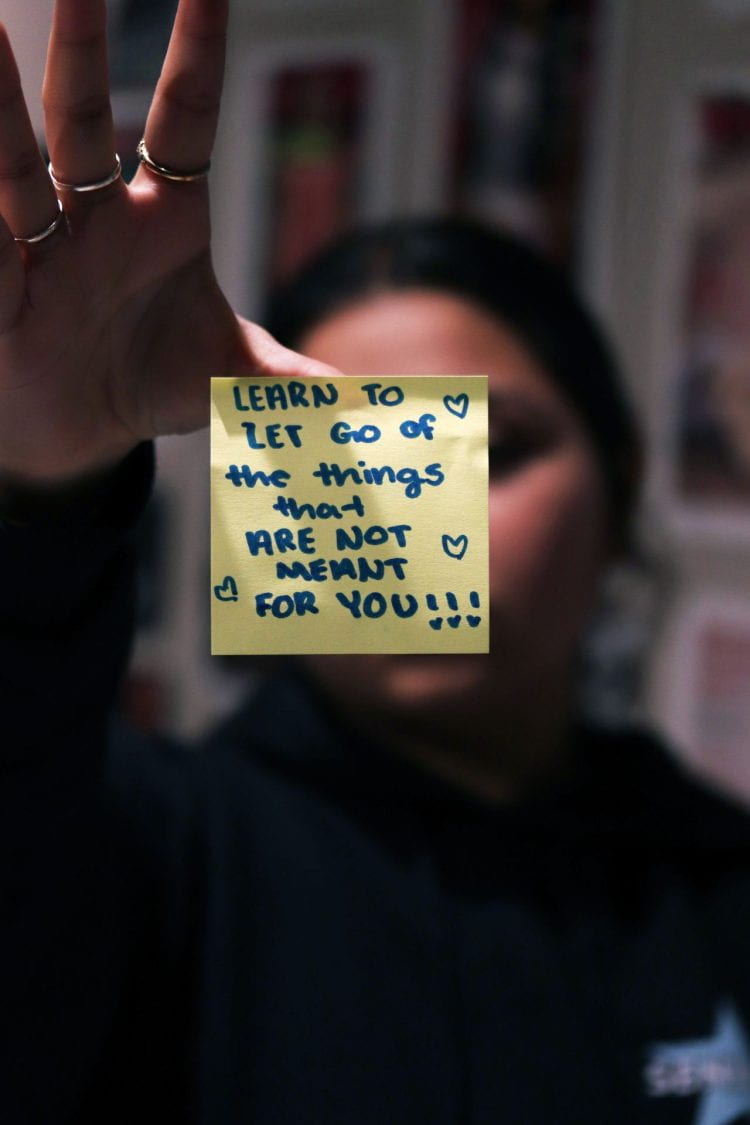 LEARN TO
LET GO OF
the things
that
ARE NOT
MEANT
FOR YOU!!!